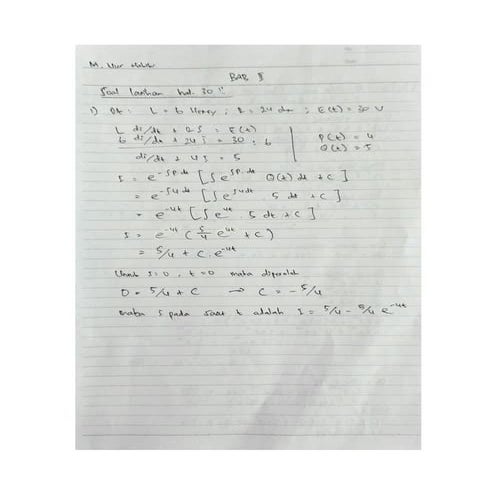 M. Nur
BAB II
Soal latihan hal. 30 !!
1) Dt : L = 6 Henry ; R = 24 ohm ; E(t) = 30 V
L di/dt + RI = E(t)
6 di/dt + 24 I = 30 : 6
di/dt + 4 I = 5
P(t) = 4
Q(t) = 5
I = e^-∫P.dt [ ∫ e^∫P.dt Q(t) dt + C ]
= e^-∫4 dt [ ∫ e^∫4dt . 5 dt + C ]
= e^-4t [ ∫ e^4t . 5 dt + C ]
I = e^-4t ( 5/4 e^4t + C )
= 5/4 + C . e^-4t
Untuk I = 0 , t = 0 maka diperoleh
0 = 5/4 + C → C = - 5/4
maka I pada saat t adalah I = 5/4 - 5/4 e^-4t